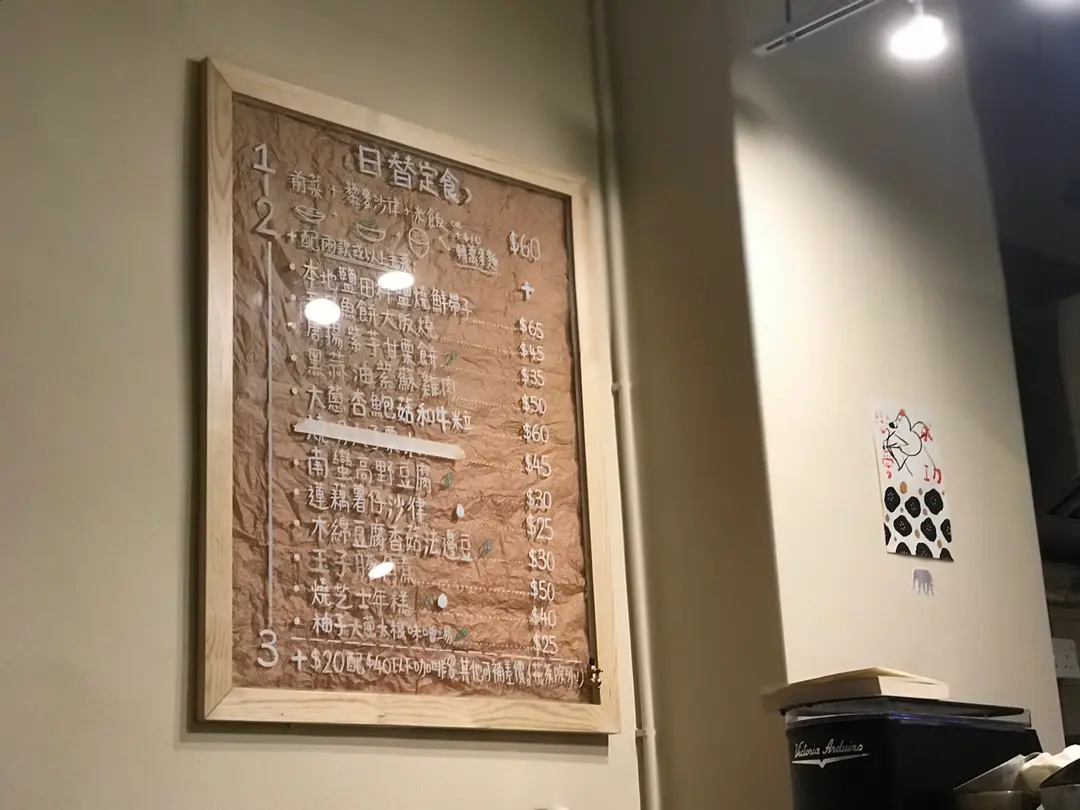 1 日替定食
前菜 + 藜麥沙律 + 米飯 $60
2 +配兩款或以上主
+$10 +
本地鹽田 鹽燒鮮帶子 $65
魚餅大阪燒 $45
唐揚紫芋甘栗餅 $35
黑蒜油紫蘇雞肉 $50
大蔥杏鮑菇和牛粒 $60
$45
南蠻高野豆腐 $30
蓮藕薯仔沙律 $25
木綿豆腐香菇法邊豆 $30
玉子豚 煮 $50
燒芝士年糕 $40
柚子大蔥太 味噌湯 $25
3 +$20配$40以下咖啡 其他可補差價
Victoria Arduino